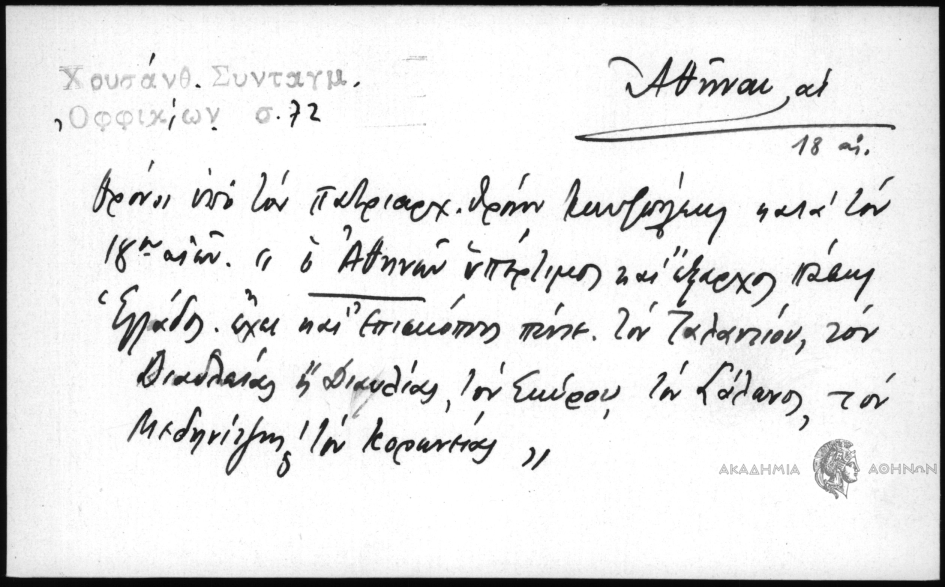 Χρυσάνθ. Συνταγμ.
Ὀφφικίων σ. 72
Ἀθῆναι, αἱ
18 αἰ.
Θρόνοι ὑπὸ τὸν πατριαρχ. θρόνον Κων/πόλεως κατὰ τὸν
18ον αἰῶν. " ὁ Ἀθηνῶν ὑπέρτιμος καὶ ἔξαρχος πάσης
Ἑλλάδος. ἔχει καὶ ἐπισκόπους πέντε. τὸν Ταλαντίου, τὸν
Διαυλείας ἢ Διαυλίας, τὸν Σκύρου, τὸν Σάλωνος, τὸν
Μεδηνίτζης, τὸν Κορωνείας "
ΑΚΑΔΗΜΙΑ ΑΘΗΝΩΝ